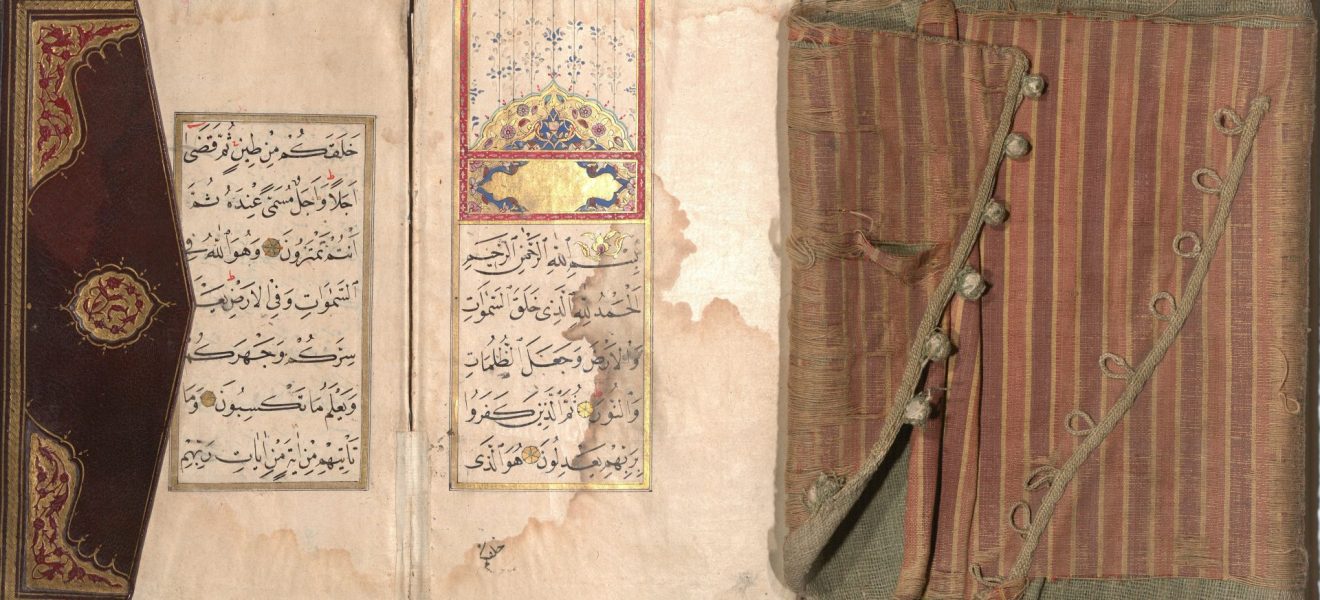 بِسْمِ اللّٰهِ الرَّحْمٰنِ الرَّحِيمِ
اَلْحَمْدُ لِلّٰهِ الَّذِى خَلَقَ السَّمٰوَاتِ
وَالْاَرْضَ وَجَعَلَ الظُّلُمَاتِ
وَالنُّورَ ثُمَّ الَّذِينَ كَفَرُوا
بِرَبِّهِمْ يَعْدِلُونَ هُوَ الَّذِى
خلقكم
خَلَقَكُمْ مِنْ طِينٍ ثُمَّ قَضٰى
اَجَلًا وَاَجَلٌ مُسَمًّى عِنْدَهُ ثُمَّ
اَنْتُمْ تَمْتَرُونَ وَهُوَ اللّٰهُ فِى
السَّمٰوَاتِ وَفِى الْاَرْضِ
سِرَّكُمْ وَجَهْرَكُمْ
وَيَعْلَمُ مَا تَكْسِبُونَ وَمَا
تَأْتِيهِمْ مِنْ اٰيَةٍ مِنْ اٰيَاتِ رَبِّهِمْ